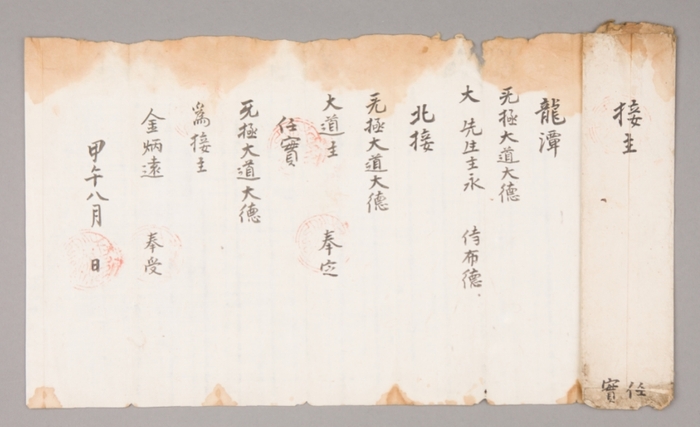 接主
任實
龍潭
无極大道大德
大先生主永侍布德
北接
无極大道大德
大道主 奉定
任實
无極大道大德
為接主
金炳遠 奉受
甲午八月 日